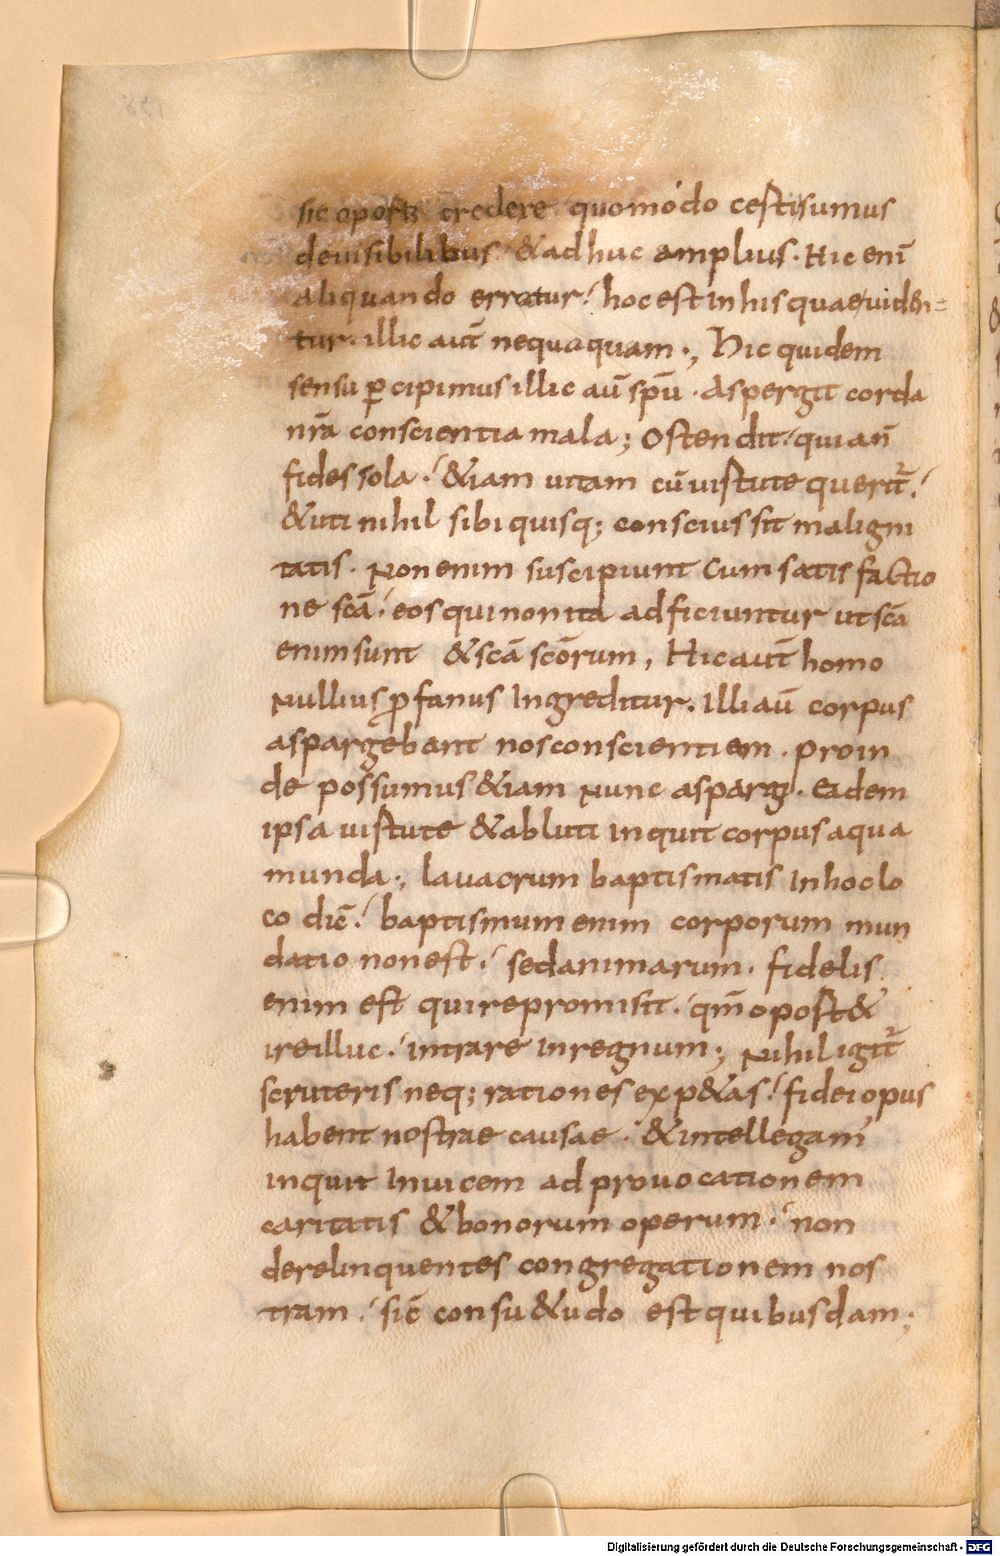 sic oportꝫ credere quomodo certisumus
deuisibilibus & adhuc amplius. Hic enī
aliquando erratur. hoc est inhis quae uiden
tur. illic aut̄ nequaquam., Hic quidem
sensu ꝑcipimus illic aū sp̄u. Aspergit corda
nr̄a conscientia mala; Ostendit quia n̄
fides sola. &iam uitam cū uirtute querit̄.
&uti nihil sibi quisq; conscius sit maligni
tatis. Non enim suscipiunt cum satisfactio
ne sc̄a. eos qui non ita adficiuntur ut sc̄a
enim sunt & sc̄a sc̄orum, Hic aut̄ homo
Nullius ꝓfanus Ingreditur. Illi aū corpus
aspargebant nos conscientiem. proin
de possumus &iam Nunc asparg. Eadem
ipsa uirtute & abluti inquit corpus aqua
munda., lauacrum baptismatis Inhoc lo
co dic̄. baptismum enim corporum mun
datio non est. sed animarum. fidelis
enim est qui repromisit. qm̄ oport&
ire illuc. intrare in regnum; Nihil igit̄
scruteris neq; rationes exp&as. fidei opus
habent nostrae causae. & intellegam̄
inquit Inuicem ad prouocationem
caritatis & bonorum operum. non
derelinquentes congregationem nos
tram. sic̄ consu&udo est quibusdam;
Digitalisierung gefördert durch die Deutsche Forschungsgemeinschaft - DFG